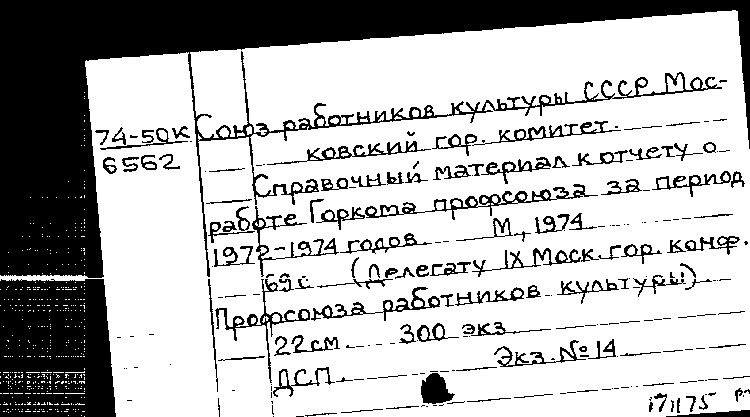 74-50К Союз работников культуры СССР. Мос-
6562 ковский гор. комитет.
Справочный материал к отчету о
работе Горкома профсоюза за период
1972-1974 годов. М., 1974
69 с (Делегату IX Моск. гор. конф.
Профсоюза работников культуры).
22см. 300 экз.
ДСП. Экз. №14.